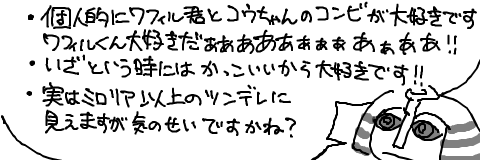 ・個人的にワフィル君とコウちゃんのコンビが大好きです
ワフィルくん大好きだぁぁあああぁぁぁ あぁぁあ!!
・いざという時にはかっこいいから大好きです!!
・実はミロリア以上のツンデレに
見えますが気のせいですかね?